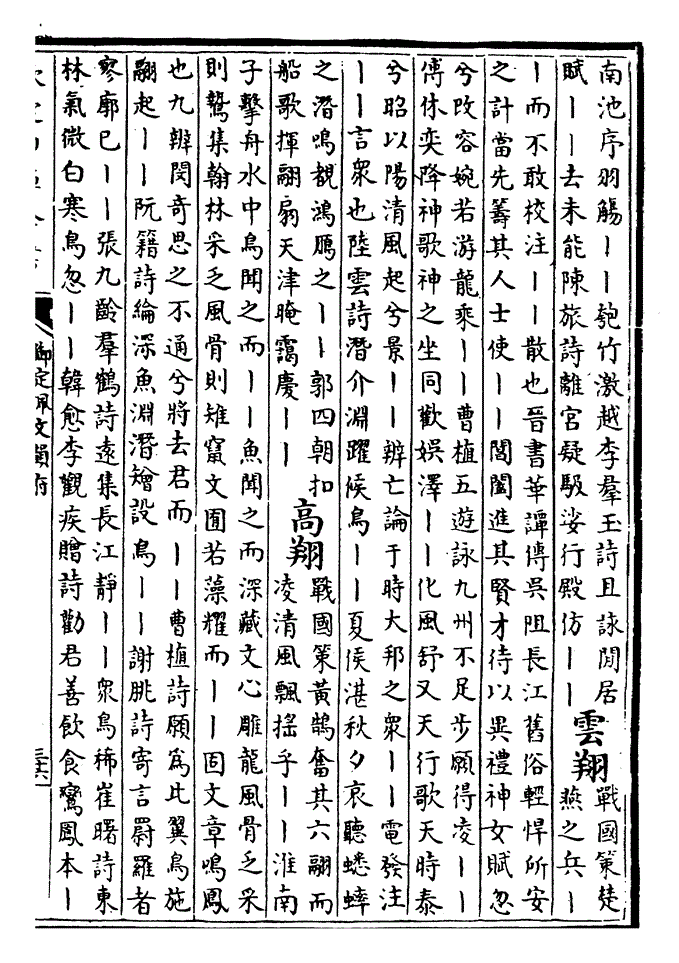 南池序羽觴丨丨匏竹激越李羣玉詩且詠閒居
賦丨丨去未能陳旅詩離宮疑馺娑行殿仿丨丨
雲翔
戰國策楚
燕之兵丨
丨而不敢校注丨丨散也晉書華譚傳吳阻長江舊俗輕悍所安
之計當先籌其人士使丨丨閶闔進其賢才待以異禮神女賦忽
兮改容婉若游龍乘丨丨曹植五遊詠九州不足步願得凌丨丨
傅休奕降神歌神之坐同歡娛澤丨丨化風舒又天行歌天時泰
兮昭以陽清風起兮景丨丨辨亡論于時大邦之衆丨丨電發注
丨丨言衆也陸雲詩潛介淵躍候鳥丨丨夏侯湛秋夕哀聽蟋蟀
之潛鳴覩鴻鴈之丨丨郭四朝扣
船歌揮翮扇天津晻靄慶丨丨
高翔
戰國策黃鵠奮其六翮而
凌清風飄搖乎丨丨淮南
子擊舟水中鳥聞之而丨丨魚聞之而深藏文心雕龍風骨乏采
則鷙集翰林采乏風骨則雉竄文囿若藻耀而丨丨固文章鳴鳳
也九辨閔奇思之不通兮將去君而丨丨曹植詩願為比翼鳥施
翮起丨丨阮籍詩綸深魚淵潛矰設鳥丨丨謝朓詩寄言罻羅者
寥廓已丨丨張九齡羣鶴詩遠集長江靜丨丨衆鳥稀崔曙詩東
林氣微白寒鳥忽丨丨韓愈李觀疾贈詩勸君善飲食鸞鳳本丨
御定佩文韻府
三六